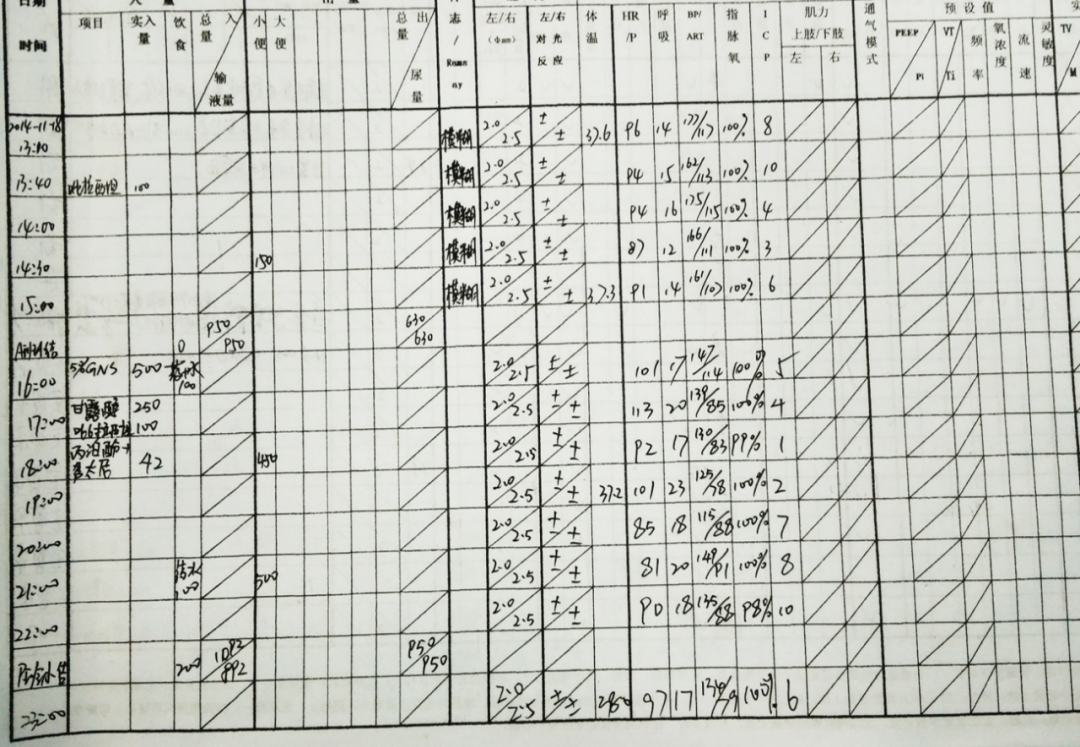 日期
时间
入 量
出 量
项目 实入量 饮食 总入量 输液量 小便 大便 总出量 尿量
志/Ramsay
左/右 (Φmm)
左/右 对光反应
体温
HR/P
呼吸
BP/ART
指脉氧
ICP
肌力
上肢/下肢
左 右
通气模式
预 设 值
PEEP Pi VT Ti 频率 氧浓度 流速 灵敏度
TV
2014-11-18
13:10 模糊 2.0/2.5 ±/± 37.6 96 14 177/117 100% 8
13:40 100 模糊 2.0/2.5 ±/± 94 15 162/113 100% 10
14:00 模糊 2.0/2.5 ±/± 94 16 175/115 100% 4
14:30 150 模糊 2.0/2.5 ±/± 87 12 166/111 100% 3
15:00 模糊 2.0/2.5 ±/± 37.3 91 14 161/107 100% 6
0 950/950 630/630
16:00 5%GNS 500 100 2.0/2.5 ±/± 101 17 147/114 100% 5
17:00 甘露醇 250 2.0/2.5 ±/± 113 20 139/85 100% 4
100
18:00 丙泊酚+ 42 450 2.0/2.5 ±/± 92 17 130/83 99% 1
19:00 2.0/2.5 ±/± 37.2 101 23 125/58 100% 2
20:00 2.0/2.5 ±/± 85 18 115/88 100% 7
21:00 100 500 2.0/2.5 ±/± 81 20 149/91 100% 8
22:00 2.0/2.5 ±/± 90 18 135/88 98% 10
200 1092/892 950/950
23:00 2.0/2.5 ±/± 97 17 100% 6